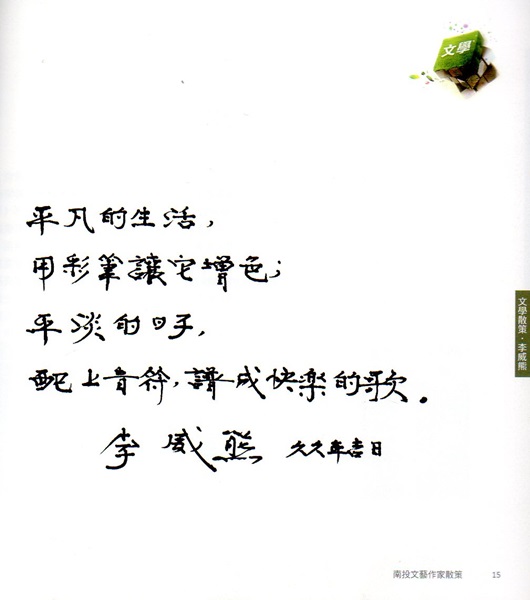 文學
平凡的生活，
用彩筆讓它增色；
平淡的日子，
配上音符，譜成快樂的歌。
李威熊 九九年吉日
文學散策·李威熊
南投文藝作家散策 15